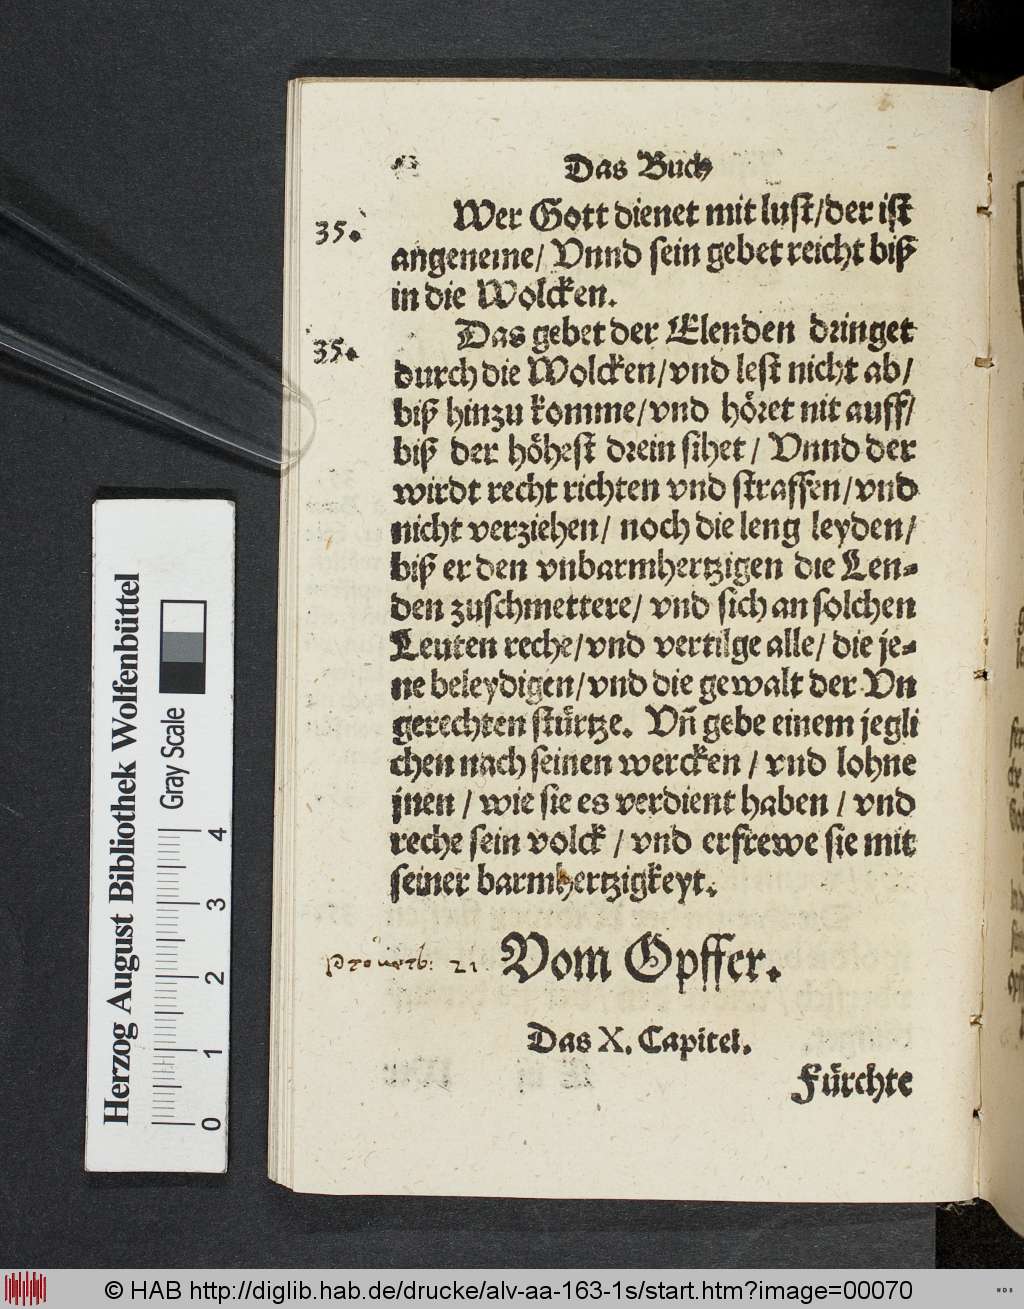 Das Buch
35. Wer Gott dienet mit lust/der ist
angeneme/ Vnnd sein gebet reicht biß
in die Wolcken.
35. Das gebet der Elenden dringet
durch die Wolcken/vnd lest nicht ab/
biß hinzu komme/vnd höret nit auff/
biß der höhest drein sihet/ Vnnd der
wirdt recht richten vnd straffen/vnd
nicht verziehen/ noch die leng leyden/
biß er den vnbarmhertzigen die Len-
den zuschmettere/ vnd sich an solchen
Leuten reche/vnd vertilge alle/ die je-
ne beleydigen/vnd die gewalt der Vn
gerechten stürtze. Vñ gebe einem jegli
chen nach seinen wercken/ vnd lohne
jnen/ wie sie es verdient haben/ vnd
reche sein volck/ vnd erfrewe sie mit
seiner barmhertzigkeyt.
Prouerb: 21
Vom Opffer.
Das X. Capitel.
Fürchte
Herzog August Bibliothek Wolfenbüttel
Gray Scale
0 1 2 3 4
© HAB http://diglib.hab.de/drucke/alv-aa-163-1s/start.htm?image=00070